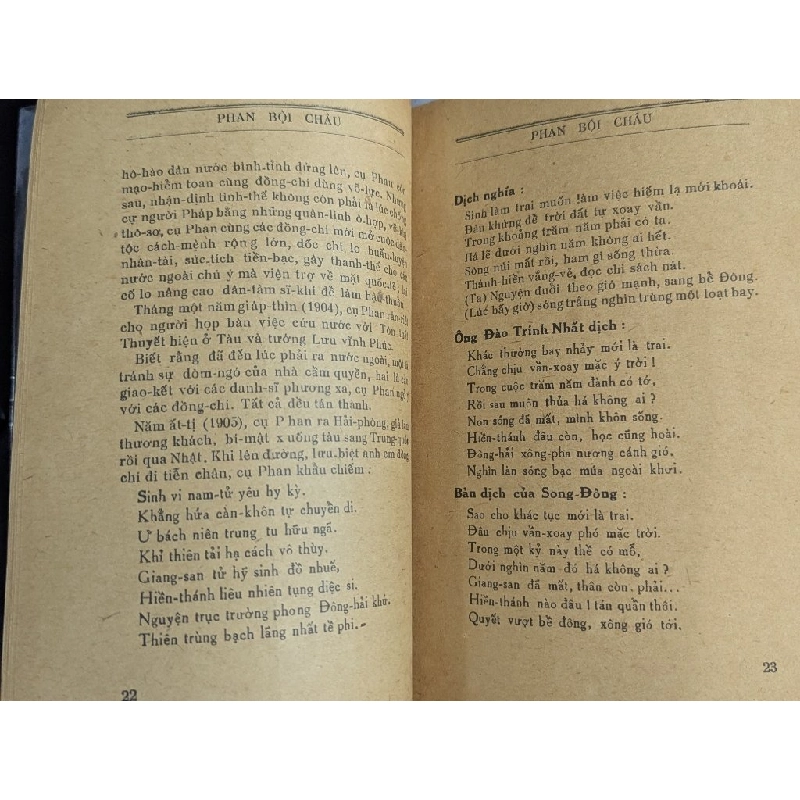 PHAN BỘI CHÂU
hô-hào dân nước bình-tĩnh đứng lên, cụ Phan
mạo-hiểm toan cùng đồng-chí dùng võ-lực. Nhưng
sau, nhận-định tình-thế không còn phải là lúc chống
cự người Pháp bằng những quân-lính ô-hợp,
thô-sơ, cụ Phan cùng các đồng-chí mới mở cuộc
tộc cách-mệnh rộng lớn, dốc chí lo huấn-luyện
nhân-tài, súc-tích tiền-bạc, gây thanh-thế cho
nước ngoài chú ý mà viện trợ về mặt quốc-tế;
cố lo nâng cao dân-tâm sĩ-khí để làm hậu-thuẫn.
Tháng một năm giáp-thìn (1904), cụ Phan
chọ người họp bàn việc cứu nước với Tôn thất
Thuyết hiện ở Tàu và tướng Lưu vĩnh Phúc
Biết rằng đã đến lúc phải ra nước ngoài, một là
tránh sự dòm-ngó của nhà cầm quyền, hai là
giao-kết với các danh-sĩ phương xa, cụ Phan ngỏ ý
với các đồng-chí. Tất cả đều tán thành.
Năm ất-tị (1905), cụ Phan ra Hải-phòng, giả
thương khách, bí-mật xuống tàu sang Trung-quốc
rồi qua Nhật. Khi lên đường, lưu-biệt anh em đồng
chí đi tiễn chân, cụ Phan khẩu chiếm :
Sinh vi nam-tử yêu hy kỳ.
Khẳng hứa càn-khôn tự chuyển di.
Ư bách niên trung tu hữu ngã.
Khỉ thiên tải hạ cách vô thùy.
Giang-san tử hỹ sinh đồ nhuế,
Hiền-thánh liêu nhiên tụng diệc si.
Nguyện trục trường phong Đông-hải khứ.
Thiên trùng bạch lãng nhất tề phi.-
22
PHAN BỘI CHÂU
Dịch nghĩa :
Sinh làm trai muốn làm việc hiếm lạ mới khoái.
Đâu khứng để trời đất tự xoay vần.
Trong khoảng trăm năm phải có ta.
Há lẽ dưới nghìn năm không ai hết.
Sông núi mất rồi, ham gì sống thừa.
Thánh hiền vắng-vẻ, đọc chi sách nát.
(Ta) Nguyện đuổi theo gió mạnh, sang bể Đông.
(Lúc bấy giờ) sóng trắng nghìn trùng một loạt bay.
Ông Đào Trinh Nhất dịch :
Khác thường bay nhảy mới là trai.
Chẳng chịu vần-xoay mặc ý trời !
Trong cuộc trăm năm đành có tớ,
Rồi sau muôn thủa há không ai ?
Non sông đã mất, mình khôn sống.
Hiền-thánh đâu còn, học cũng hoài.
Đông-hải xông-pha nương cánh gió,
Nghìn lần sóng bạc múa ngoài khơi.
Bản dịch của Song-Động :
Sao cho khác tục mới là trai.
Đâu chịu vần-xoay phó mặc trời.
Trong một kỷ này thề có mỗ,
Dưới nghìn năm đó há không ai ?
Giang-san đã mất, thân còn, phải...
Hiền-thánh nào đâu ! tán quẩn thôi.
Quyết vượt bể đông, xông gió tới.
23